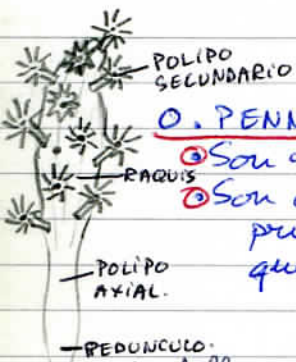 POLIPO
SECUNDARIO
O. PENN
Son
RAQUIS
Son
POLIPO
AXIAL.
PEDUNCULO.